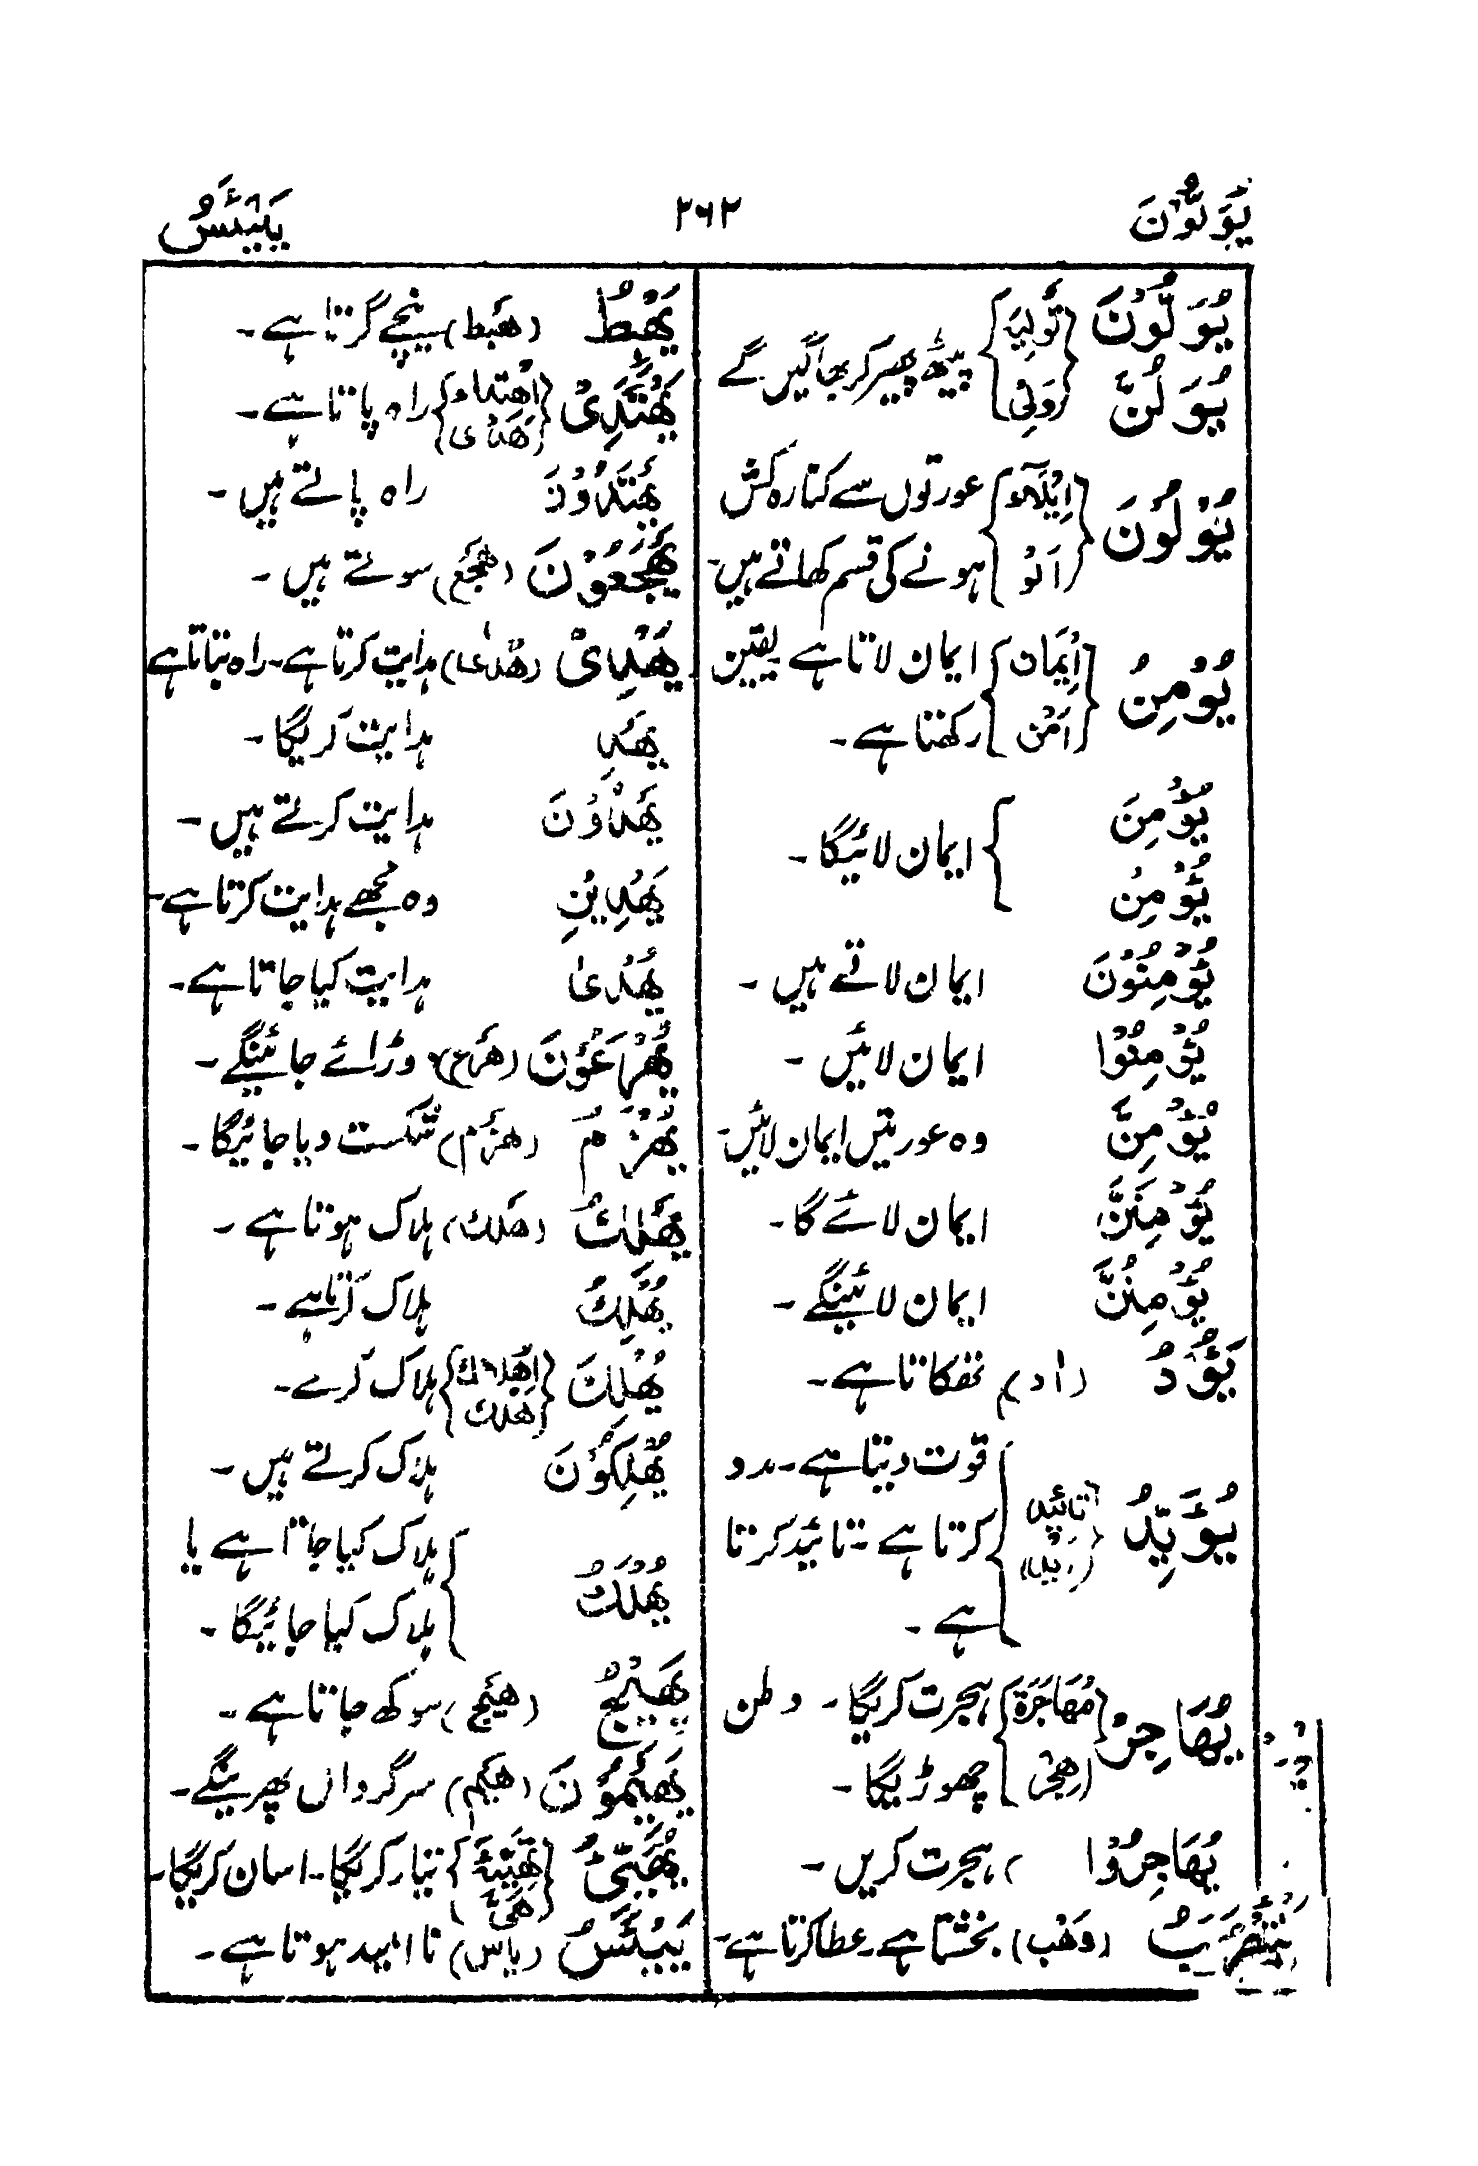 يُوَلُّوْنَ ۲۶۲ يَيْئَسُ
يُوَلُّوْنَ { تَوْلِيَه } پیٹھ پھیر کر بھاگیں گے
يُوَلُّنَّ { (وَلٰی)
يُوْلُوْنَ { اِيْلَاءُ } عورتوں سے کنارہ کش
(اَلَوْ) ہونے کی قسم کھاتے ہیں۔
يُوْمِنُ { اِيْمَان } ایمان لاتا ہے یقین
(اَمْن) رکھتا ہے۔
يُؤْمِنَ } ایمان لائیگا۔
يُؤْمِنُ
يُؤْمِنُوْنَ ایمان لاتے ہیں۔
يُؤْمِنُوْا ایمان لائیں۔
يُؤْمِنَّ وہ عورتیں ایمان لائیں۔
يُؤْمِنَنَّ ایمان لائے گا۔
يُؤْمِنُنَّ ایمان لائینگے۔
يَؤُدُ (اٰد) تھکاتا ہے۔
قوت دیتا ہے۔ مدد
يُؤَيِّدُ { تائید } کرتا ہے۔ تائید کرتا
ہے۔
يُهَاجِرُ { مُهَاجَرَة } ہجرت کریگا۔ وطن
(هِجْر) چھوڑیگا۔
يُهَاجِرُوْا ہجرت کریں۔
يَهَبُ (وَهْب) بخشتا ہے۔ عطا کرتا ہے۔
يَهْبِطُ (هَبَط) نیچے گرتا ہے۔
يَهْتَدِىْ { اِهْتِدَاء } راہ پاتا ہے۔
(هَدٰى)
يَهْتَدُوْنَ راہ پاتے ہیں۔
يَهْجَعُوْنَ (هَجَع) سوتے ہیں۔
يَهْدِىْ (هُدٰى) ہدایت کرتا ہے۔ راہ بتاتا ہے
يَهْدِ ہدایت کریگا۔
يَهْدُوْنَ ہدایت کرتے ہیں۔
يَهْدِيَنِ وہ مجھے ہدایت کرتا ہے۔
يُهْدٰى ہدایت کیا جاتا ہے۔
يُهْرَعُوْنَ (هَرَع) دڑائے جائینگے۔
يُهْزَمُ (هَزَم) شکست دیا جائیگا۔
يَهْلِكُ (هَلَك) ہلاک ہوتا ہے۔
يُهْلِكُ ہلاک کرتا ہے۔
يُهْلِكَ { اِهْلَاك } ہلاک کرے۔
(هَلَك)
يُهْلِكُوْنَ ہلاک کرتے ہیں۔
يُهْلَكُ } ہلاک کیا جاتا ہے یا
ہلاک کیا جائیگا۔
يَهِيْجُ (هَيْج) سوکھ جاتا ہے۔
يَهِيْمُوْنَ (هَيْم) سرگرداں پھرینگے۔
يُهَيِّئُ { تَهْيِئَة } تیار کریگا۔ اسان کریگا۔
يَيْئَسُ (یاس) نا امید ہوتا ہے۔